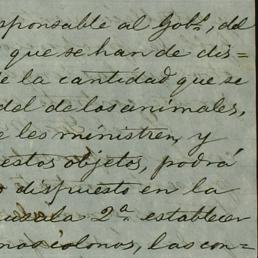 sponsable al Gobo, del
que se han de dis=
e la cantidad que se
del de los animales,
e les ministren, y
estos objetos, podrá
dispuesto en la
usula 2a establecer
nos colonos, las con=